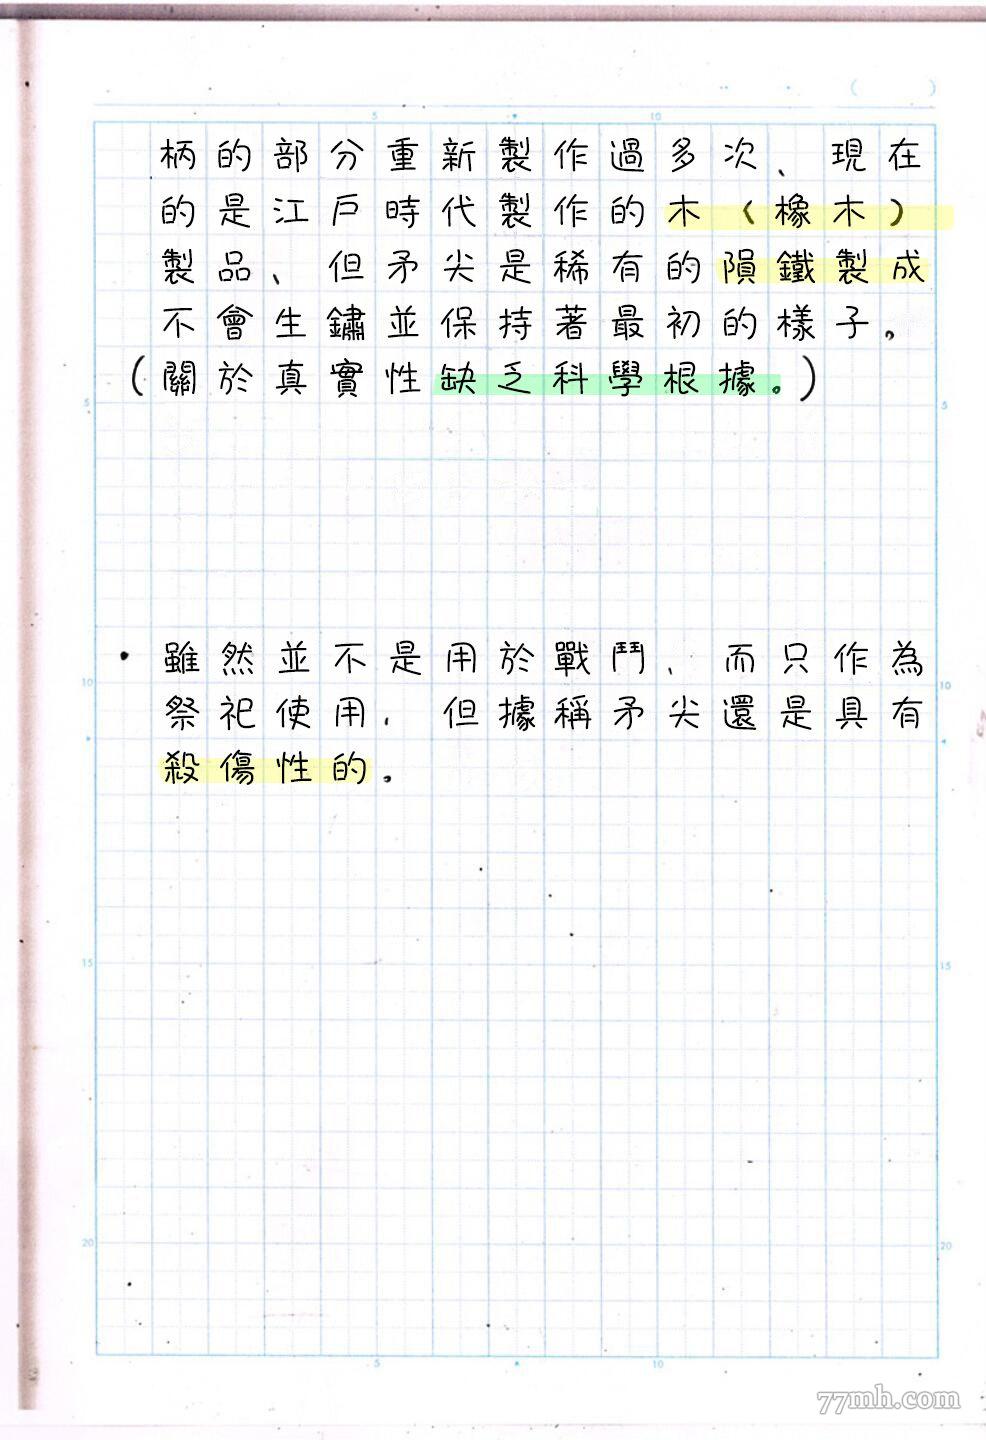 ( )
5 10
柄的部分重新製作過多次、現在
的是江戶時代製作的木（橡木）
製品、但矛尖是稀有的隕鐵製成
不會生鏽並保持著最初的樣子。
（關於真實性缺乏科學根據。）
5 5
・雖然並不是用於戰鬥、而只作為
10 10
祭祀使用、但據稱矛尖還是具有
殺傷性的。
15 15
20 20
5 10
77mh.com